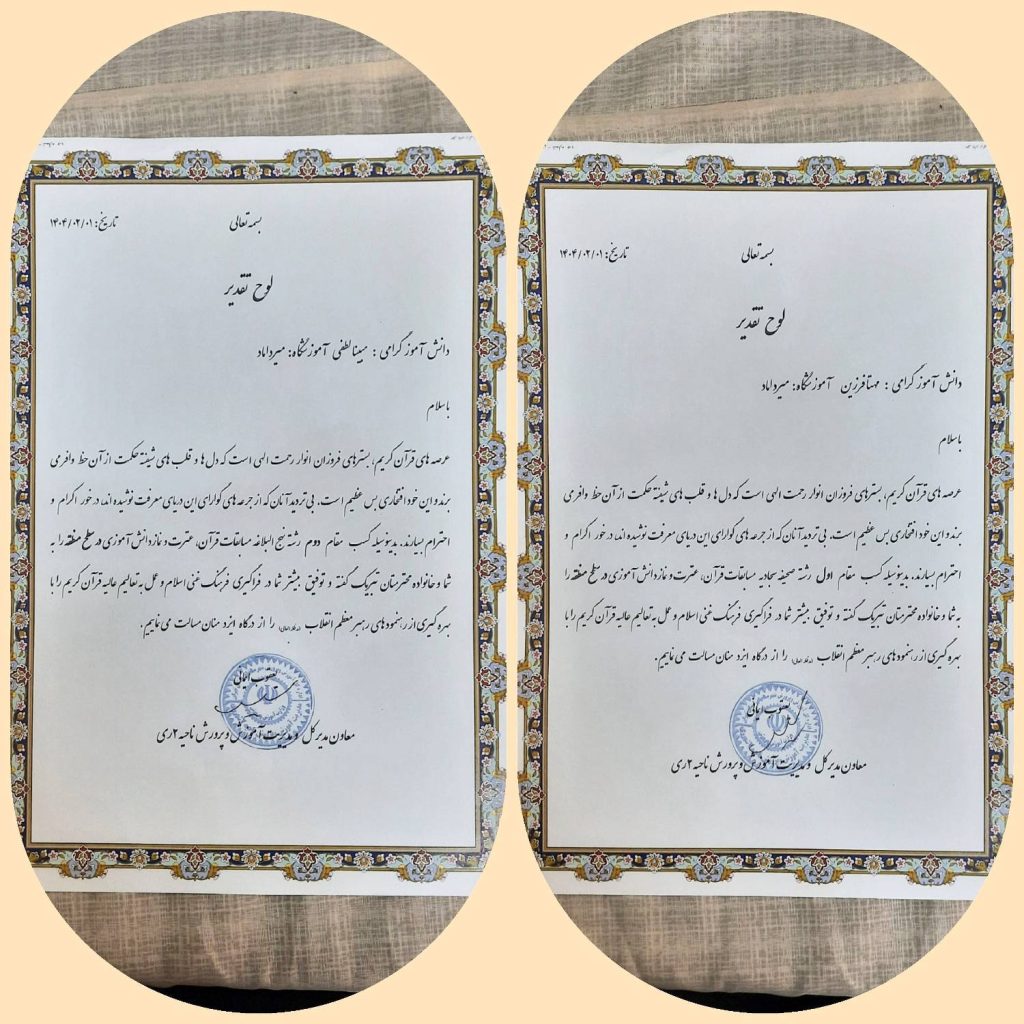 بسمه تعالی
تاریخ: ۱۴۰۴/۰۲/۰۱
لوح تقدیر
دانش آموز گرامی : مبینا لطفی آموزشگاه: میرداماد
باسلام
عرصه های قرآن کریم، بسترهای فروزان انوار رحمت الهی است که دل ها و قلب های شیفته حکمت از آن حظ وافر می
برند و این خود افتخاری بس عظیم است. بی تردید آنان که از جرعه های گوارای این دریای معرفت نوشیده اند، در خور اکرام و
احترام بسیارند. بدینوسیله کسب مقام دوم رشته نهج البلاغه مسابقات قرآن، عترت و نماز دانش آموزی در سطح منطقه را به
شما و خانواده محترمتان تبریک گفته و توفیق بیشتر شما در فراگیری فرهنگ غنی اسلام و عمل به تعالیم عالیه قرآن کریم را با
بهره گیری از رهنمودهای رهبر معظم انقلاب را از درگاه ایزد منان مسالت می نماییم.
یعقوب ایمانی
معاون مدیر کل و مدیریت آموزش و پرورش ناحیه ۲ ری
بسمه تعالی
تاریخ: ۱۴۰۴/۰۲/۰۱
لوح تقدیر
دانش آموز گرامی : مهتا فرزین آموزشگاه: میرداماد
باسلام
عرصه های قرآن کریم، بسترهای فروزان انوار رحمت الهی است که دل ها و قلب های شیفته حکمت از آن حظ وافر می
برند و این خود افتخاری بس عظیم است. بی تردید آنان که از جرعه های گوارای این دریای معرفت نوشیده اند، در خور اکرام و
احترام بسیارند. بدینوسیله کسب مقام اول رشته صحیفه سجادیه مسابقات قرآن، عترت و نماز دانش آموزی در سطح منطقه را
به شما و خانواده محترمتان تبریک گفته و توفیق بیشتر شما در فراگیری فرهنگ غنی اسلام و عمل به تعالیم عالیه قرآن کریم را با
بهره گیری از رهنمودهای رهبر معظم انقلاب را از درگاه ایزد منان مسالت می نماییم.
یعقوب ایمانی
معاون مدیر کل و مدیریت آموزش و پرورش ناحیه ۲ ری